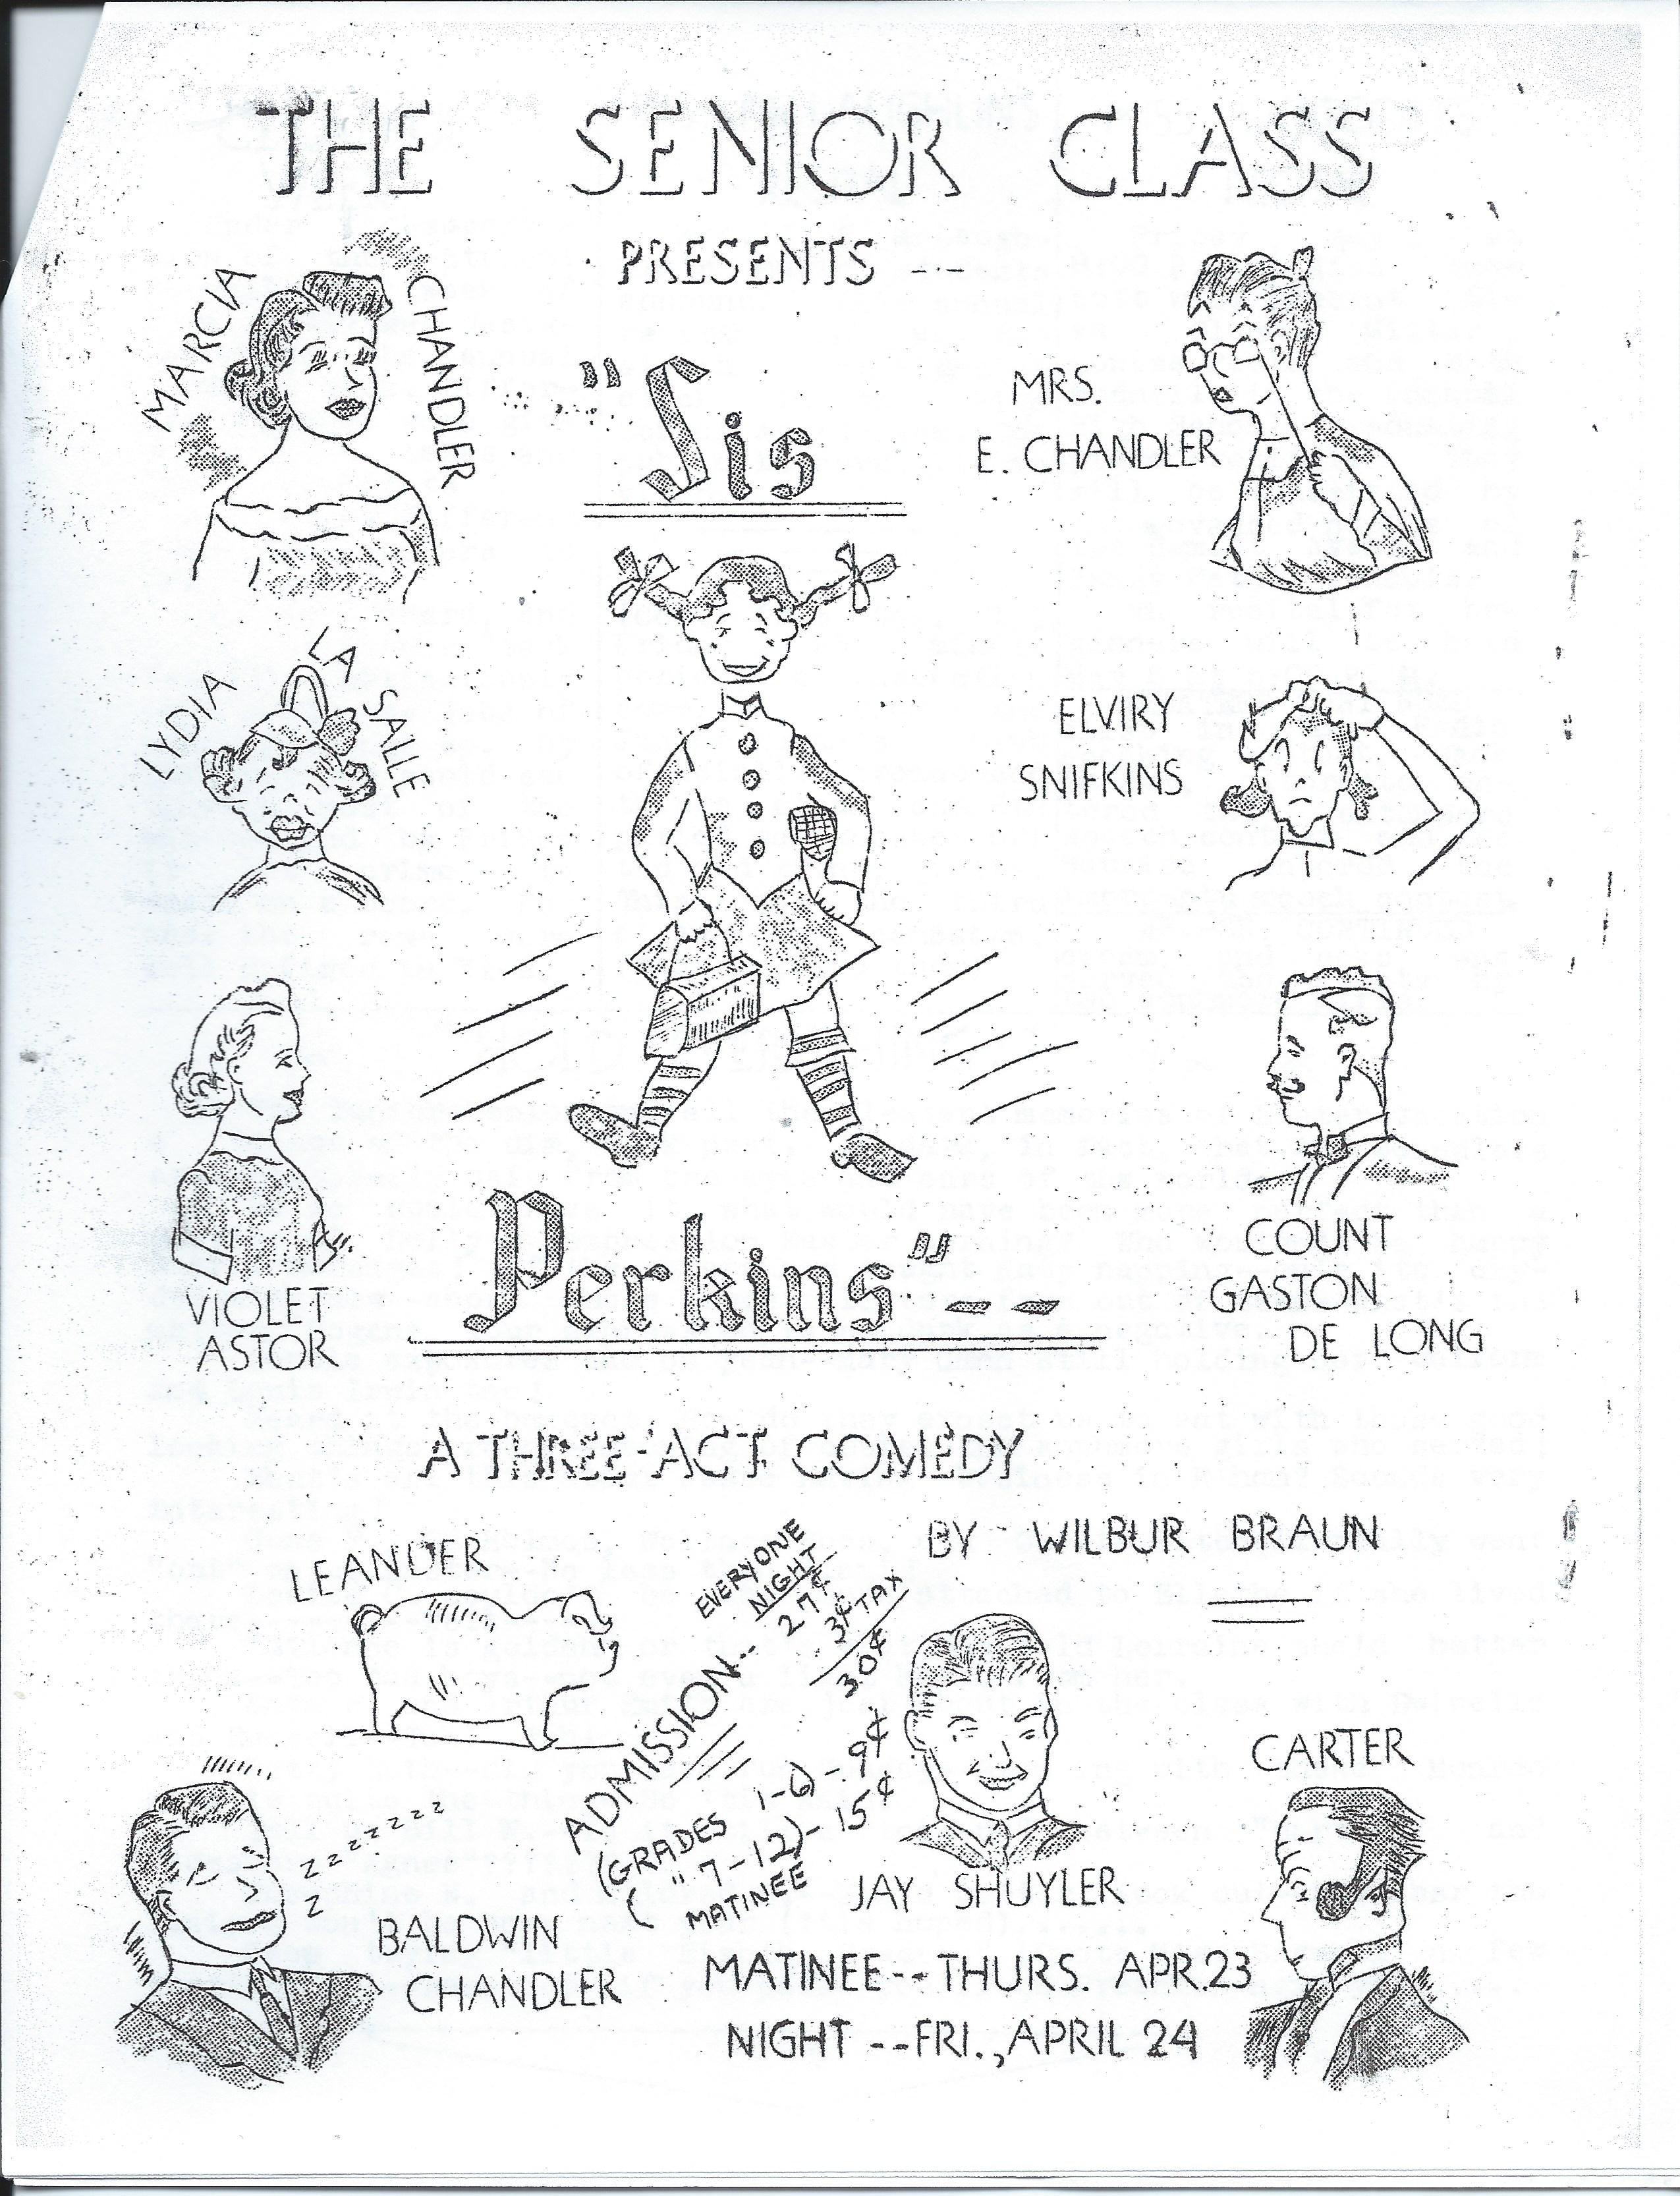 THE SENIOR CLASS
PRESENTS --
MARCIA CHANDLER
"Sis
MRS.
E. CHANDLER
LYDIA LA SALLE
ELVIRY
SNIFKINS
VIOLET
ASTOR
COUNT
GASTON
DE LONG
Perkins"--
A THREE-ACT COMEDY
BY WILBUR BRAUN
LEANDER
EVERYONE
NIGHT
ADMISSION-- 27¢
3¢ TAX
30¢
(GRADES 1-6)-9¢
( " 7-12)-15¢
MATINEE
JAY SHUYLER
CARTER
ZZZZZZZZ
Z
BALDWIN
CHANDLER
MATINEE--THURS. APR.23
NIGHT --FRI., APRIL 24